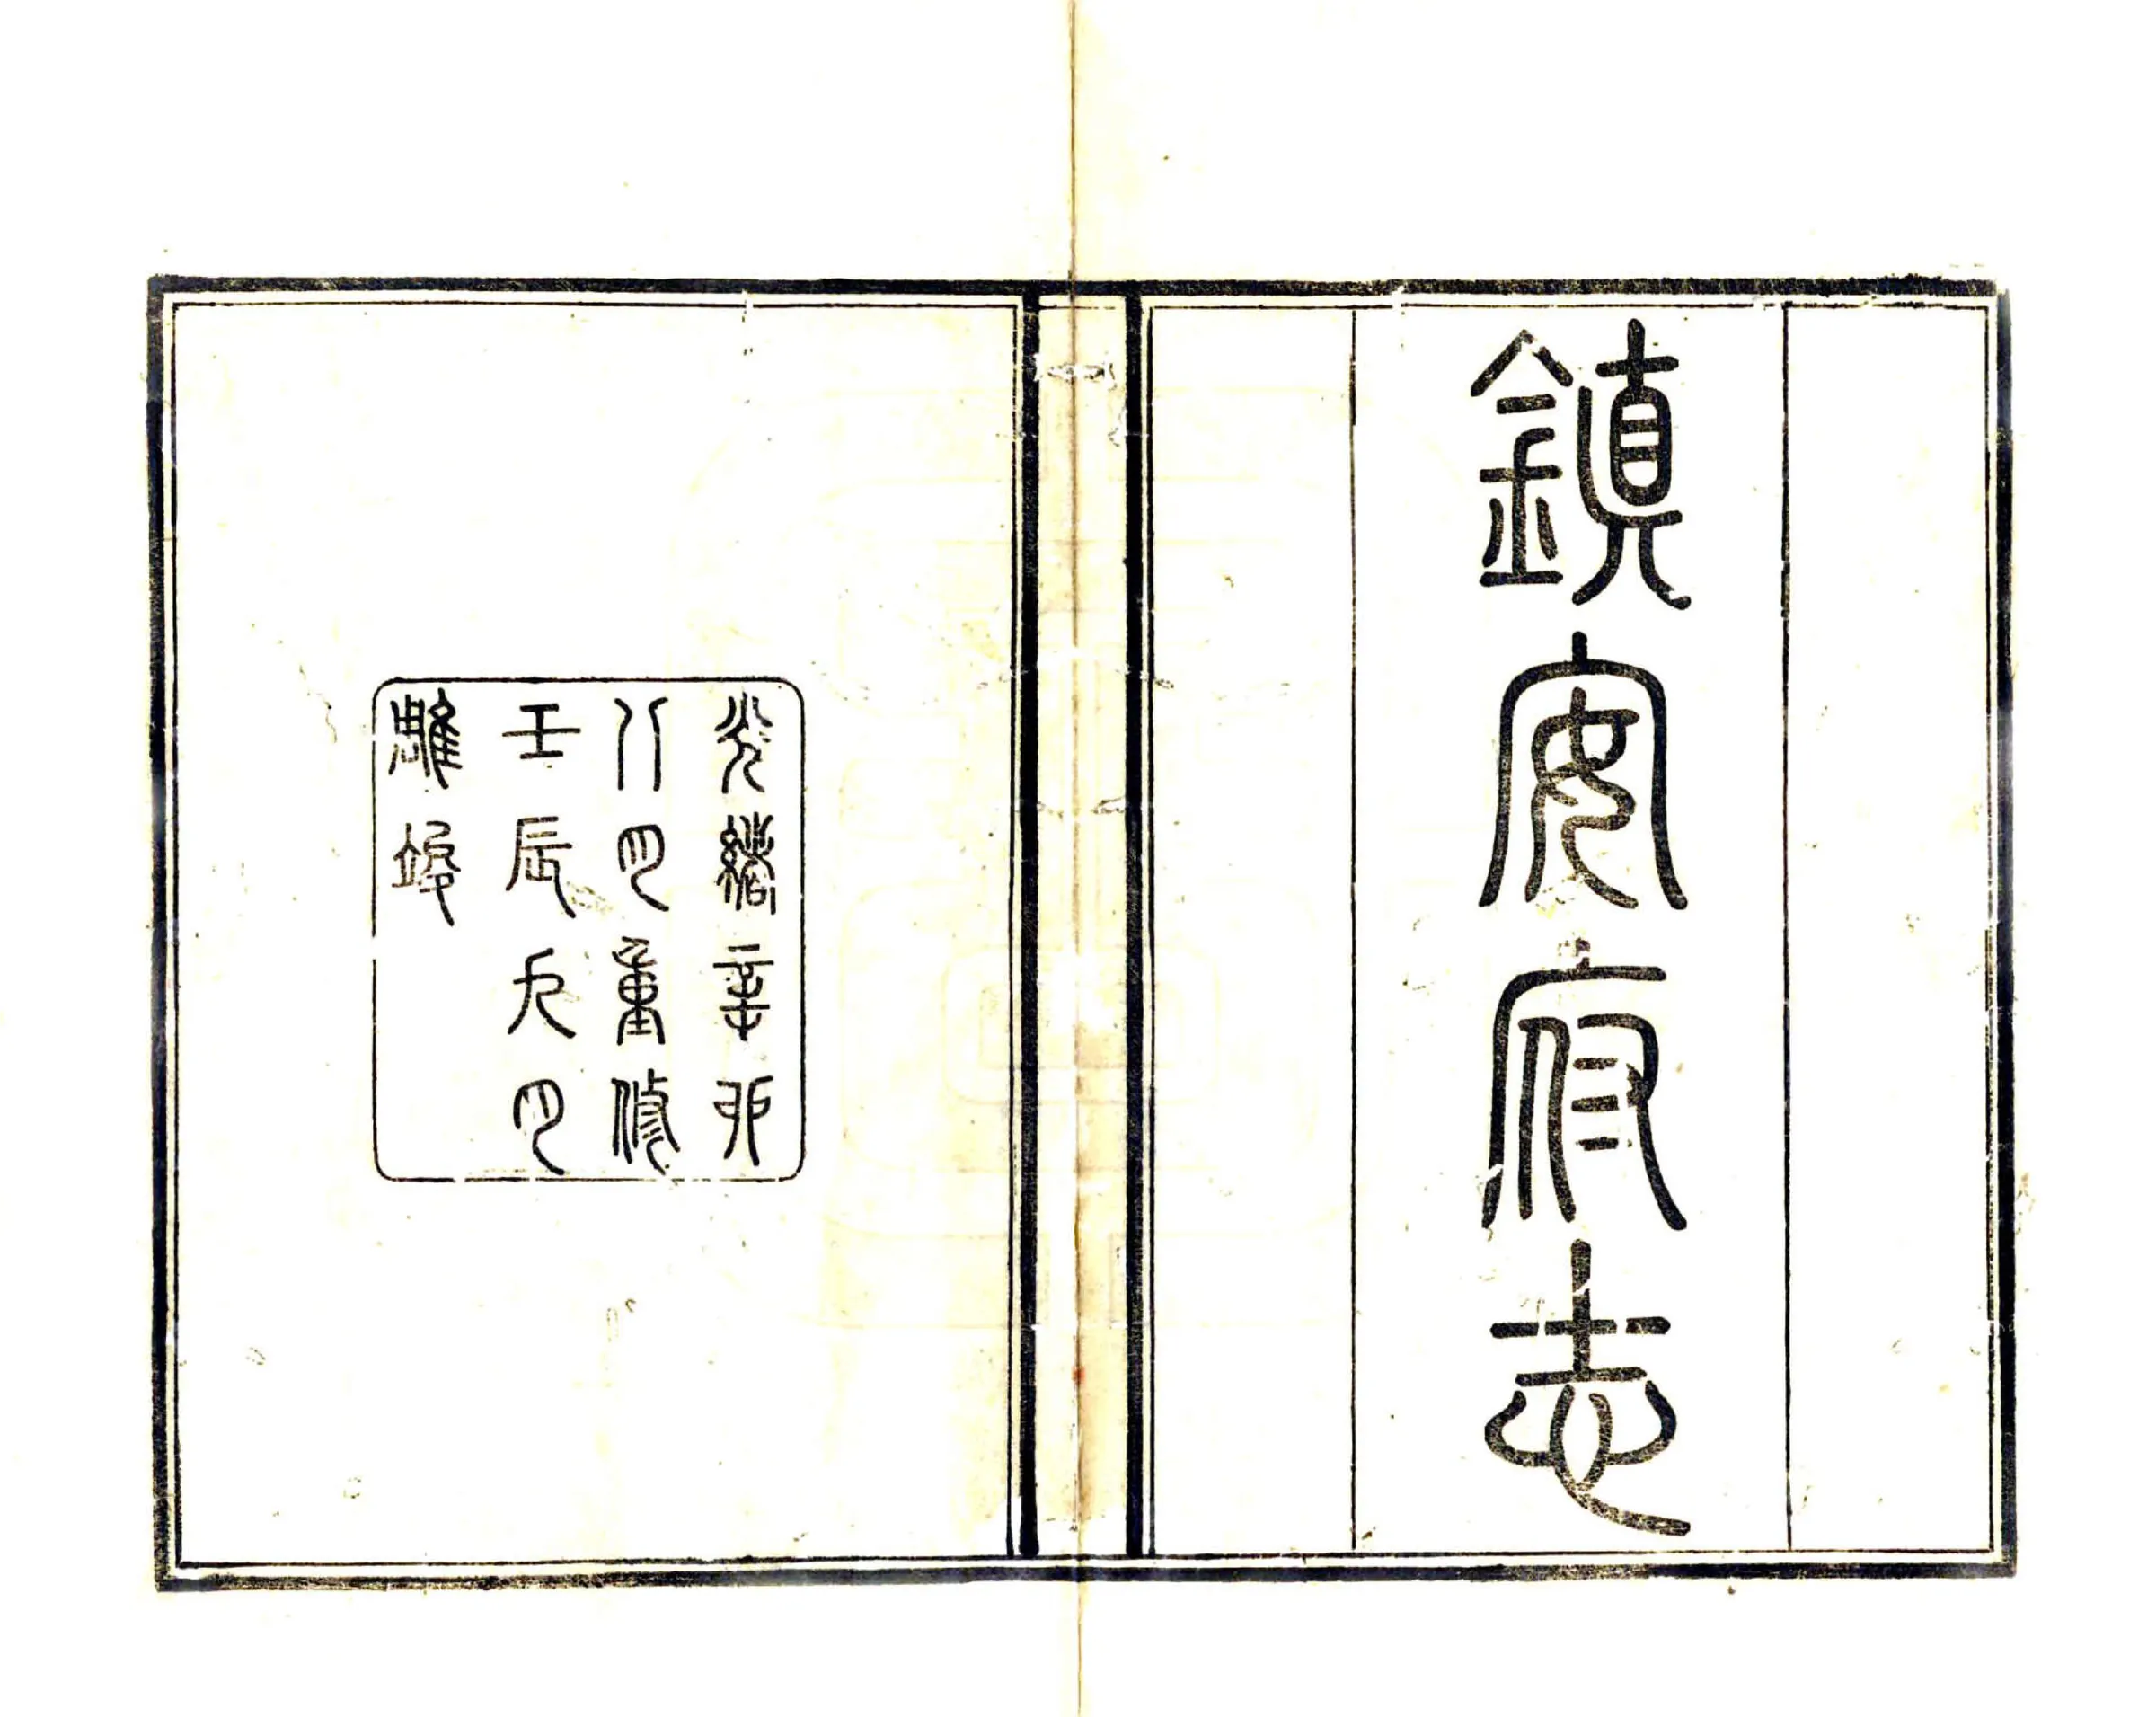 鎮安府志
光緒辛卯
八月重修
壬辰九月
雕竣